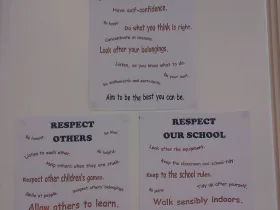 Have self-confidence.
Be happy.
Do what you think is right.
Concentrate in lessons.
Look after your belongings.
Listen, so you know what to do.
Be enthusiastic and participate.
Do your best.
Aim to be the best you can be.
RESPECT
OTHERS
Be honest.
Be kind.
Listen to each other.
Be helpful.
Help others when they are stuck.
Respect other children's games.
Smile at people.
Respect others' belongings
Allow others to learn.
RESPECT
OUR SCHOOL
Look after the equipment.
Keep the classroom and school tidy
Keep to the school rules.
Be quiet
Tidy up after yourself.
Walk sensibly indoors.